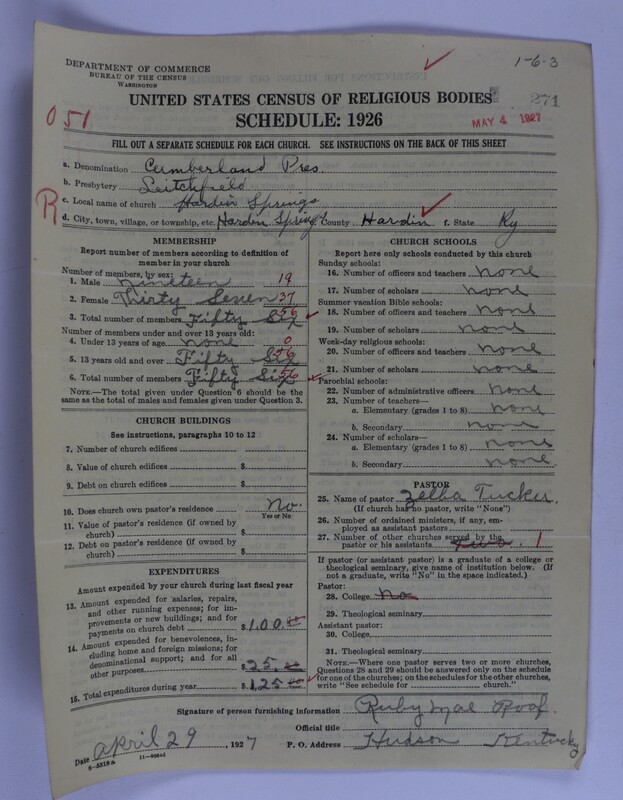 1-6-3
DEPARTMENT OF COMMERCE
BUREAU OF THE CENSUS
WASHINGTON
UNITED STATES CENSUS OF RELIGIOUS BODIES
271
SCHEDULE: 1926
MAY 4 1927
051
FILL OUT A SEPARATE SCHEDULE FOR EACH CHURCH. SEE INSTRUCTIONS ON THE BACK OF THIS SHEET
a. Denomination Cumberland Pres.
b. Presbytery Leitchfield
R
c. Local name of church Hardin Springs
d. City, town, village, or township, etc. Hardin Springs County Hardin f. State Ky
MEMBERSHIP
Report number of members according to definition of
member in your church
Number of members, by sex:
1. Male nineteen 19
2. Female Thirty Seven 37
3. Total number of members Fifty Six 56
Number of members under and over 13 years old:
4. Under 13 years of age none 0
5. 13 years old and over Fifty Six 56
6. Total number of members Fifty Six 56
NOTE.—The total given under Question 6 should be
same as the total of males and females given under Question 3.
CHURCH BUILDINGS
See instructions, paragraphs 10 to 12
7. Number of church edifices
8. Value of church edifices $
9. Debt on church edifices $
10. Does church own pastor's residence no.
Yes or No
11. Value of pastor's residence (if owned by
church) $
12. Debt on pastor's residence (if owned by
church) $
EXPENDITURES
Amount expended by your church during last fiscal year
13. Amount expended for salaries, repairs,
and other running expenses; for im-
provements or new buildings; and for
payments on church debt $100.00
14. Amount expended for benevolences, in-
cluding home and foreign missions; for
denominational support; and for all
other purposes $25.00
15. Total expenditures during year $125 00
CHURCH SCHOOLS
Report here only schools conducted by this church
Sunday schools:
16. Number of officers and teachers none
17. Number of scholars none
Summer vacation Bible schools:
18. Number of officers and teachers none
19. Number of scholars none
Week-day religious schools:
20. Number of officers and teachers none
21. Number of scholars none
Parochial schools:
22. Number of administrative officers none
23. Number of teachers—
a. Elementary (grades 1 to 8) none
b. Secondary none
24. Number of scholars—
a. Elementary (grades 1 to 8) none
b. Secondary none
PASTOR
25. Name of pastor Zelba Tucker.
(If church has no pastor, write "None")
26. Number of ordained ministers, if any, em-
ployed as assistant pastors
27. Number of other churches served by the
pastor or his assistants two 1
If pastor (or assistant pastor) is a graduate of a college or
theological seminary, give name of institution below. (If
not a graduate, write "No" in the space indicated.)
Pastor:
28. College no
29. Theological seminary
Assistant pastor:
30. College
31. Theological seminary
NOTE.—Where one pastor serves two or more churches,
Questions 28 and 28 should be answered only on the schedule
for one of the churches; on the schedules for the other churches,
write "See schedule for church."
Signature of person furnishing information Ruby Mae Roof.
Official title
Date april 29, 1927 P. O. Address Hudson Kentucky